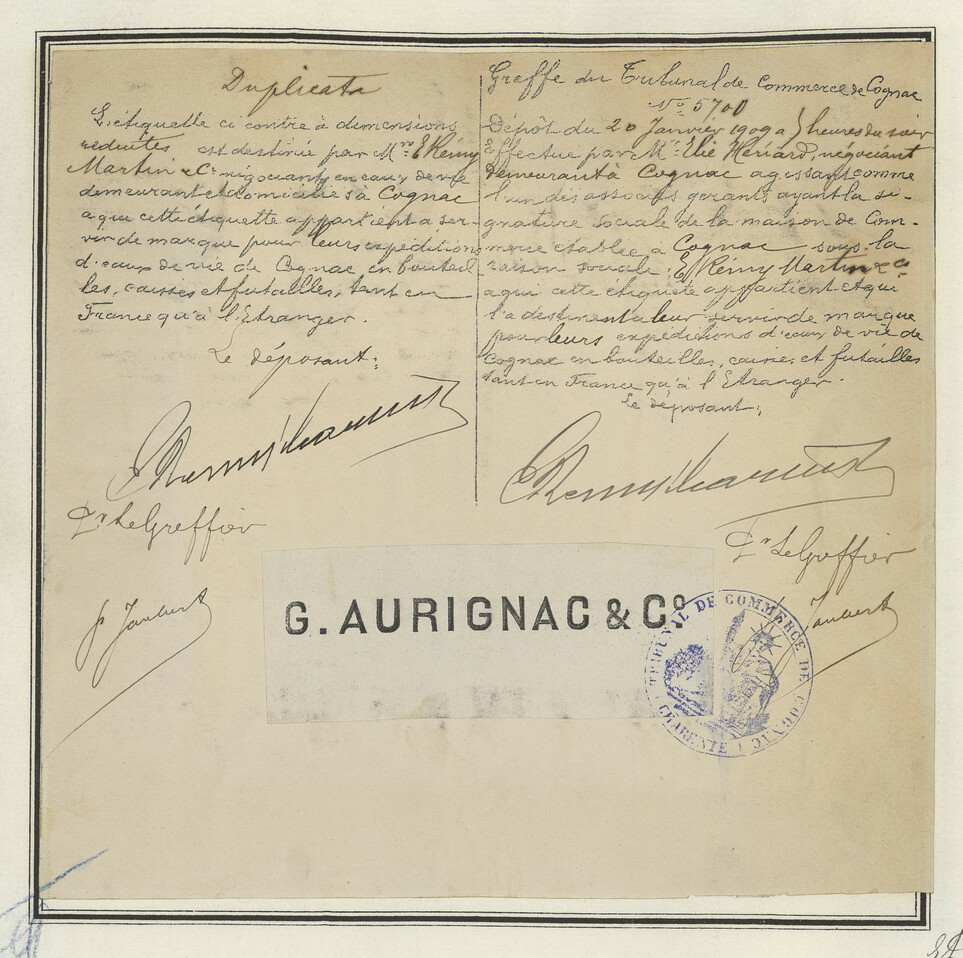 Duplicata
L'étiquette ci contre à dimensions
réduites est destinée par Mrs E Rémy
Martin & Co négociants en eaux de vie
demeurant et domiciliés à Cognac
a qui cette étiquette appartient a ser-
vir de marque pour leurs expéditions
d'eaux de vie de Cognac, en bouteil
les, caisses et futailles, tant en
France qu'à l'Etranger.
Le déposant:
E Remy Martin
Pr Le Greffier
P Joubert
Greffe du Tribunal de Commerce de Cognac
No 5700
Dépôt du 20 Janvier 1909 a 5 heures du soir
Effectué par Mr Elie Hériard, négociant
demeurant à Cognac agissant comme
l'un des associés gérants ayant la si-
gnature sociale de la maison de Com-
merce établie à Cognac sous la
raison sociale: E. Rémy Martin & Co
a qui cette étiquete appartient et qui
l'a destinent a leur servir de marque
pour leurs expéditions d'eaux de vie de
Cognac en bouteilles, caisses et futailles
tant en France qu'à l'Etranger.
Le déposant:
E Remy Martin
Pr Le Greffier
Joubert
G. AURIGNAC & Co.
TRIBUNAL DE COMMERCE DE COGNAC
CHARENTE